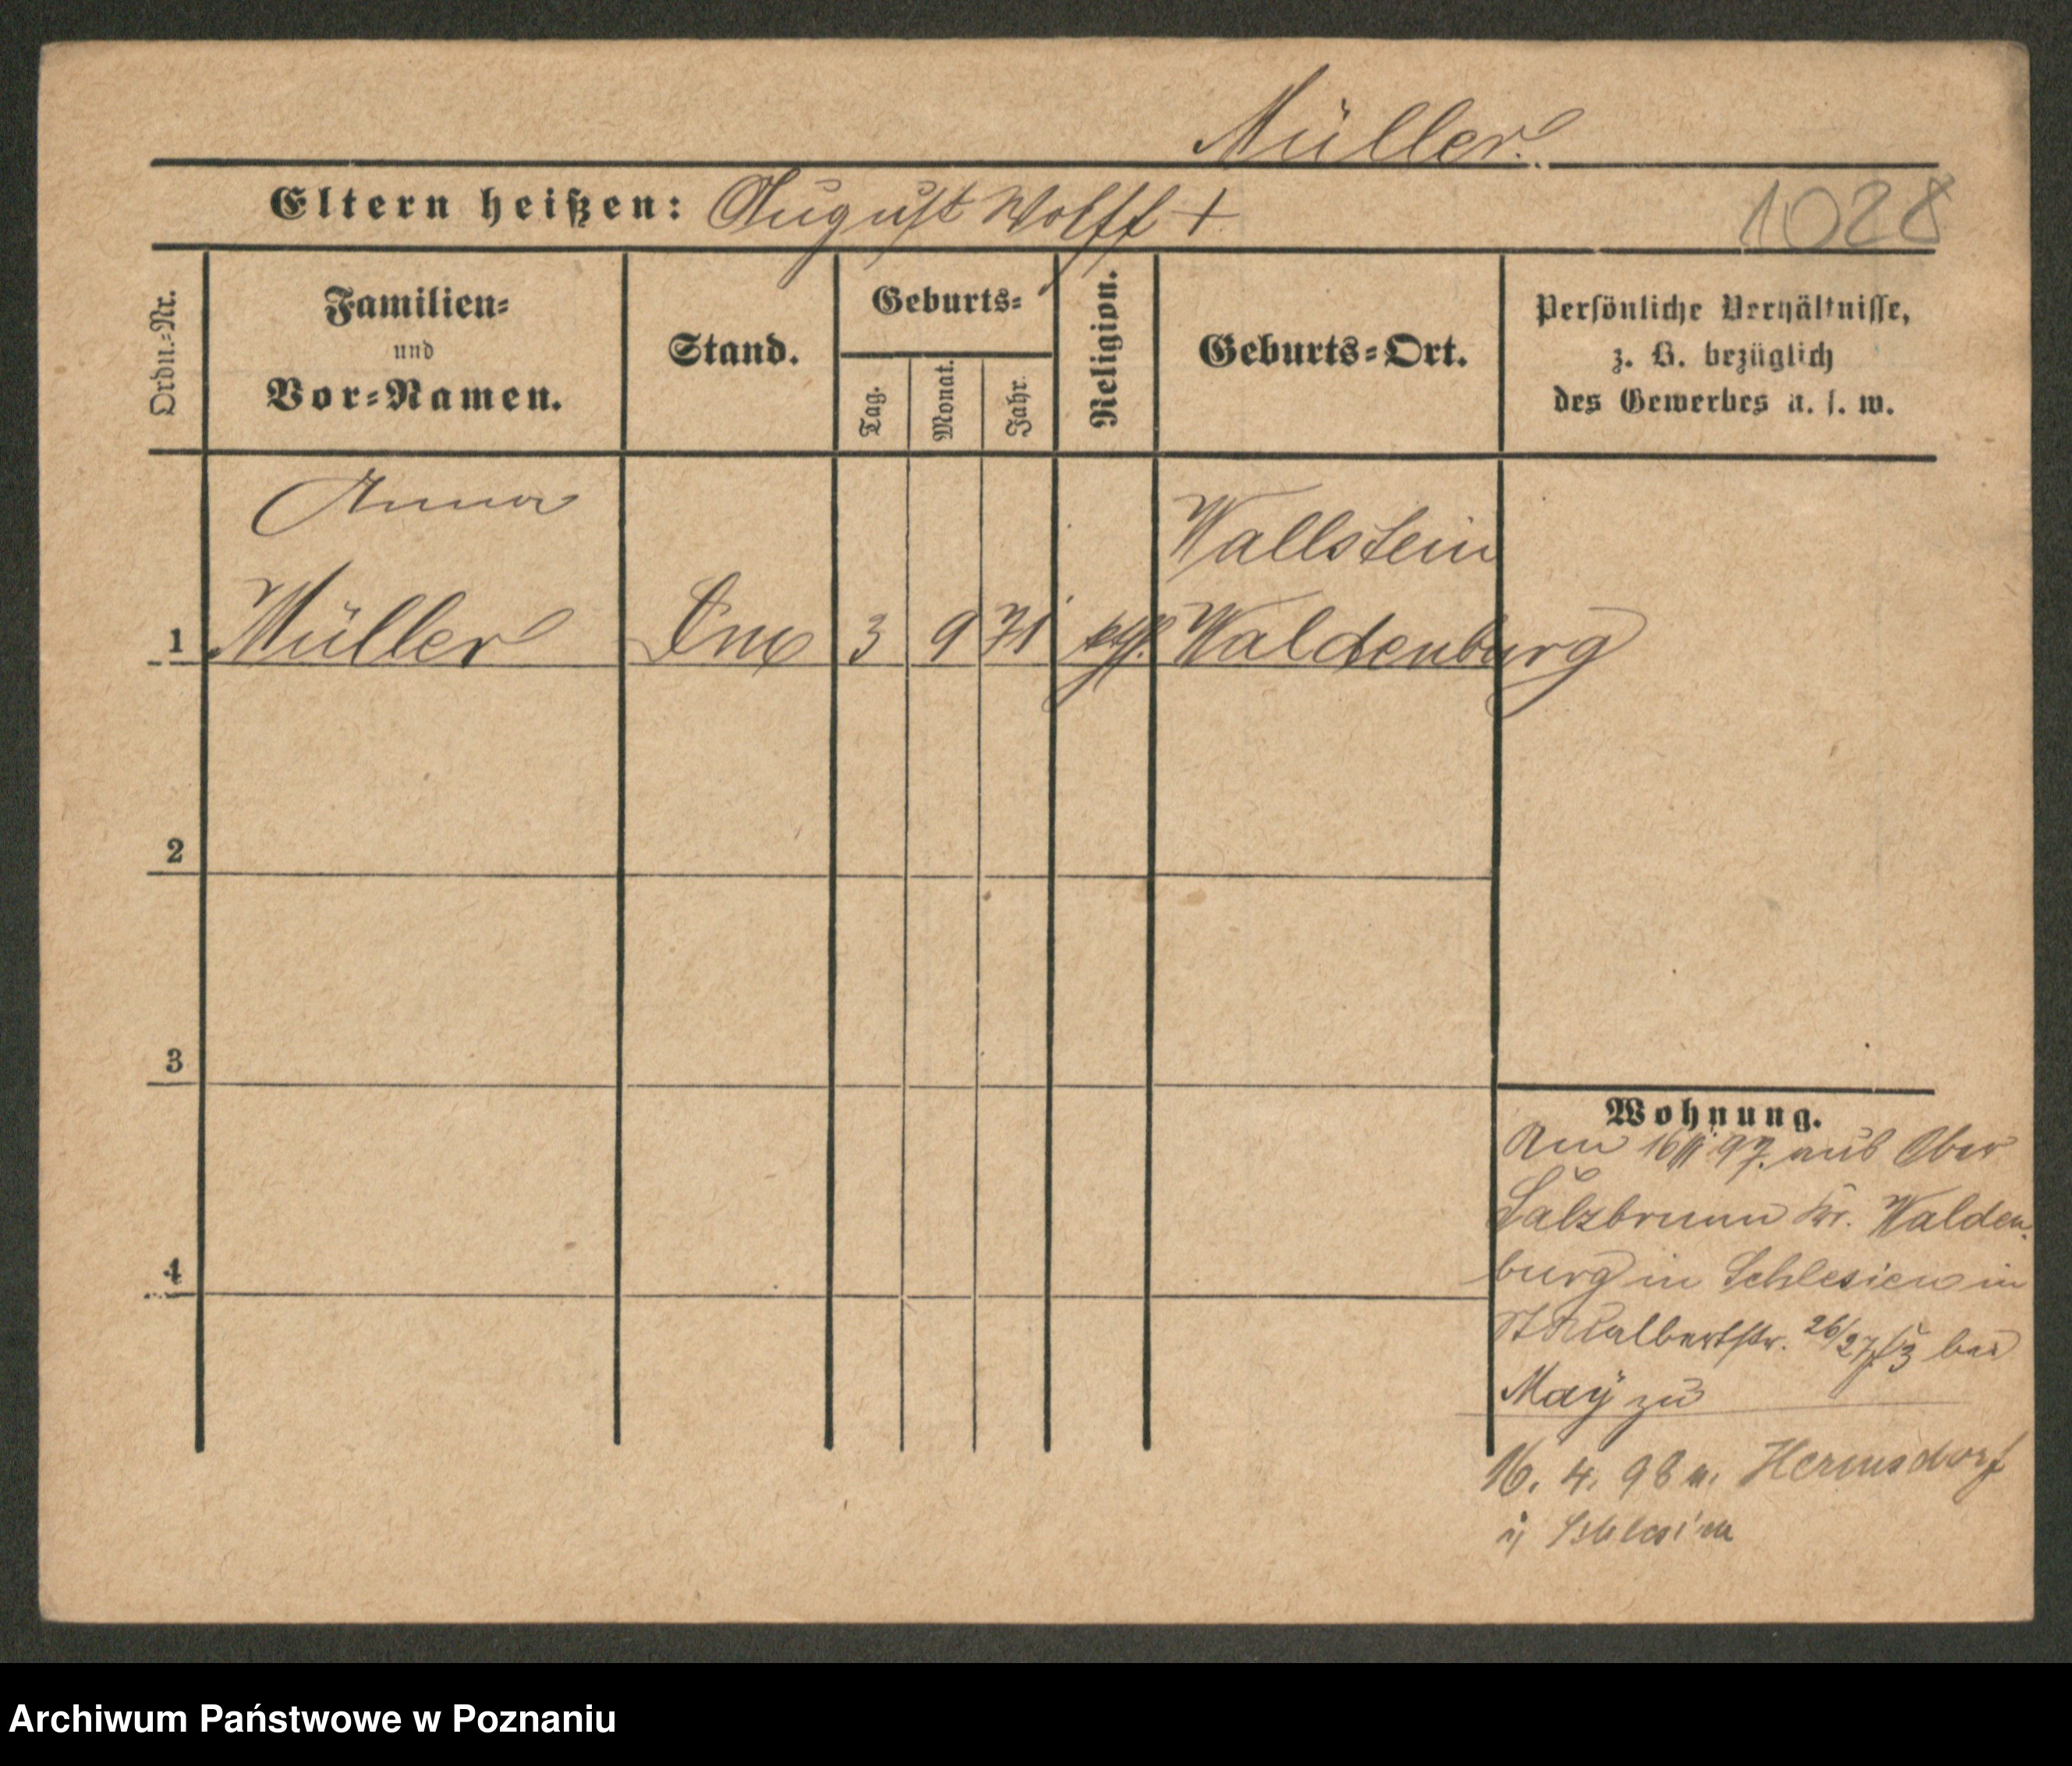 Müller.
Eltern heißen: August Wolff +
1028
Ordn.-Nr.
Familien-
und
Vor-Namen.
Stand.
Geburts-
Tag.
Monat.
Jahr.
Religion.
Geburts-Ort.
Persönliche Verhältnisse,
z. B. bezüglich
des Gewerbes u. s. w.
Anna
Wallstein
1 Müller 3 9 71 Waldenburg
2
3
4
Wohnung.
Am 97. aus Ober
Salzbrunn Kr. Walden
burg in Schlesien in
26/27 bei
May zu
16. 4. 98 n. Hermsdorf
i/ Schlesien
Archiwum Państwowe w Poznaniu